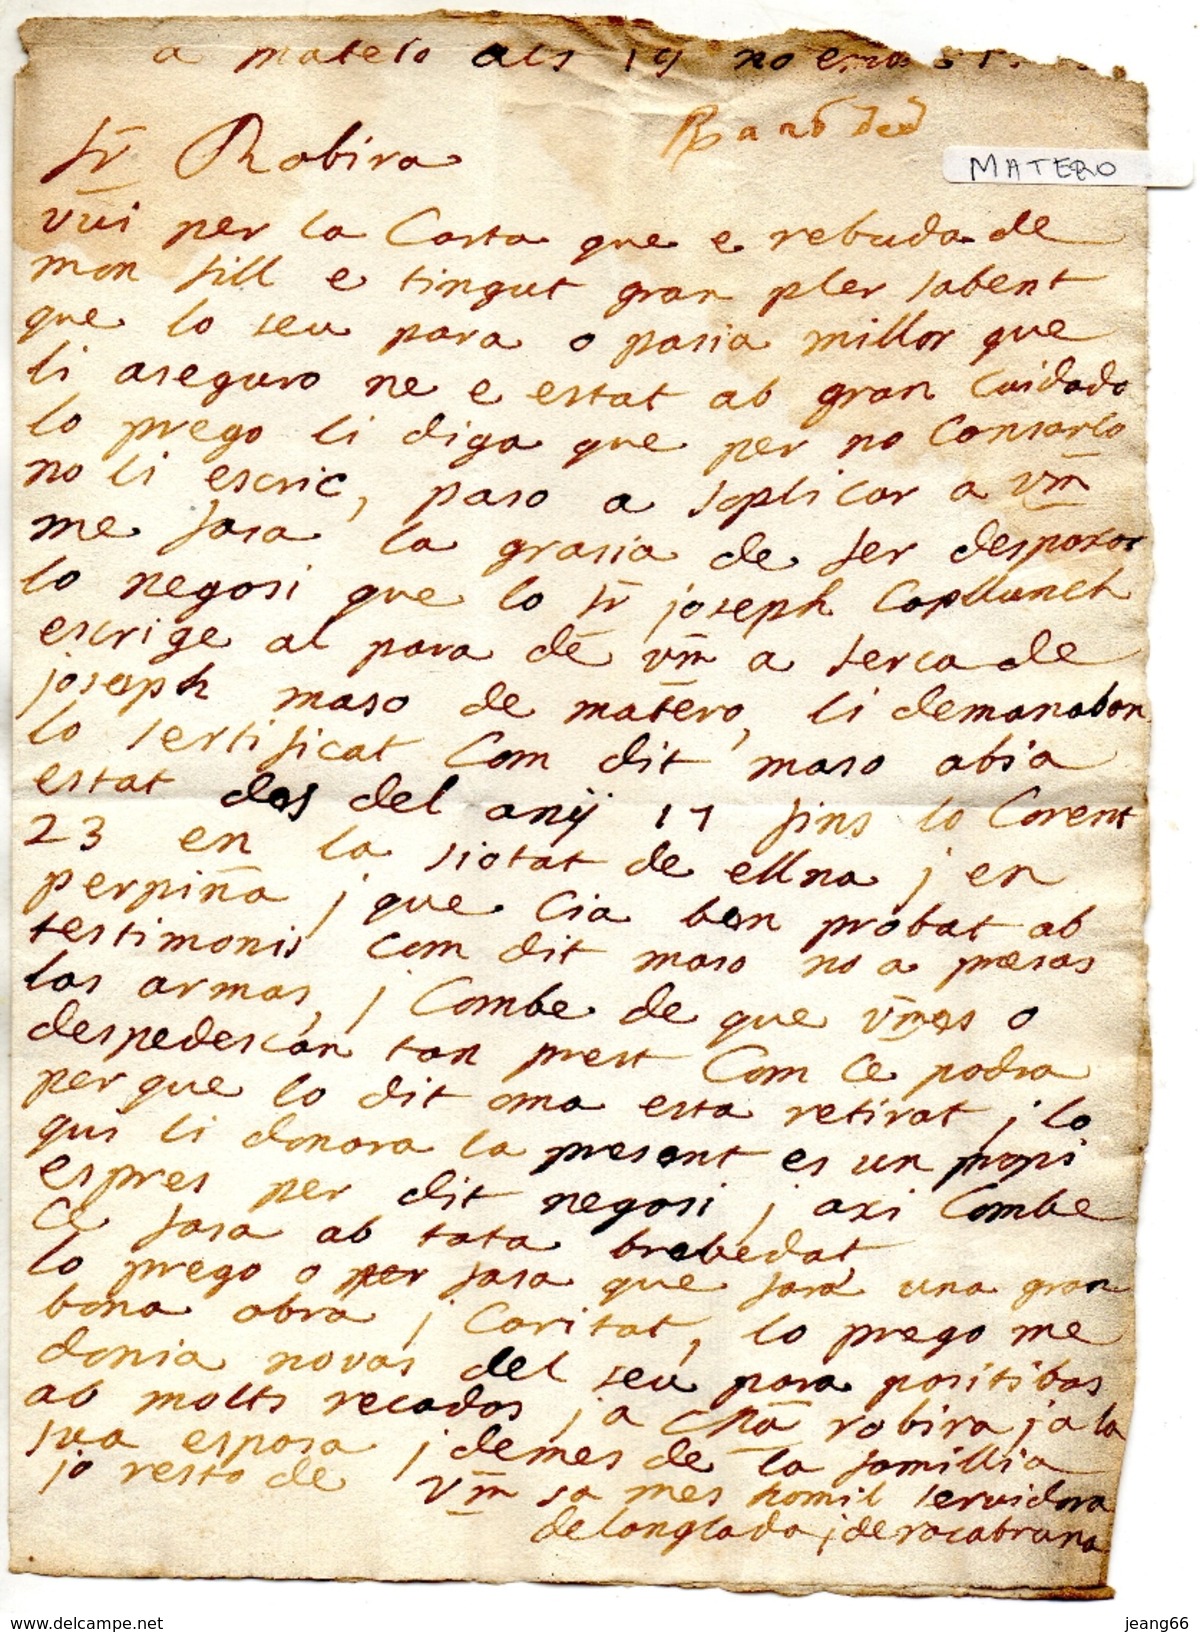 a matero als 19 no
Sr Robira
MATERO
vui per la Carta que e rebuda de
mon fill e tingut gran pler sabent
que lo seu para o pasia millor que
li aseguro ne e estat ab gran Cuidado
lo prego li diga que per no Consarlo
no li escric, paso a soplicar a vm
me fasa la grasia de fer despaxar
lo negosi que lo Sr joseph Capllunch
escrige al para de vm a serca de
joseph maso de matero, li demanaban
lo sertificat Com dit maso abia
estat des del anÿ 17 fins lo Corent
23 en la siotat de ellna j en
perpiña j que Cia ben probat ab
testimonis Com dit maso no a presas
las armas, j Combe de que vmes o
despedescan tan prest Com Ce podra
per que lo dit oma esta retirat j lo
qui li donara la present es un propi
espres per dit negosi j axi Combe
Ce fasa ab tota brebedat
lo prego o per fasa que fara una gran
bona obra j Caritat, lo prego me
donia novas del seu para positibas
ab molts recados j a robira j a la
sua esposa j demes de la famillia
jo resto de vm sa mes homil servidora
delanglada j de rocabruna
www.delcampe.net
jeang66